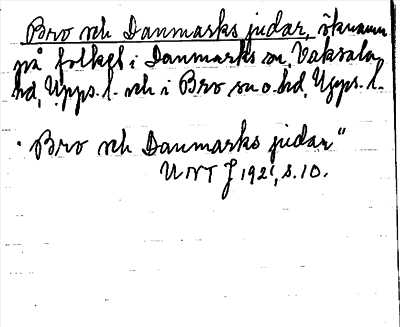 Bro och Danmarks judar, öknamn
på folket i Danmarks sn, Vaksala
hd, Upps. l. och i Bro sn o. hd, Upps. l.
"Bro och Danmarks judar"
UNT J 1921, s. 10.